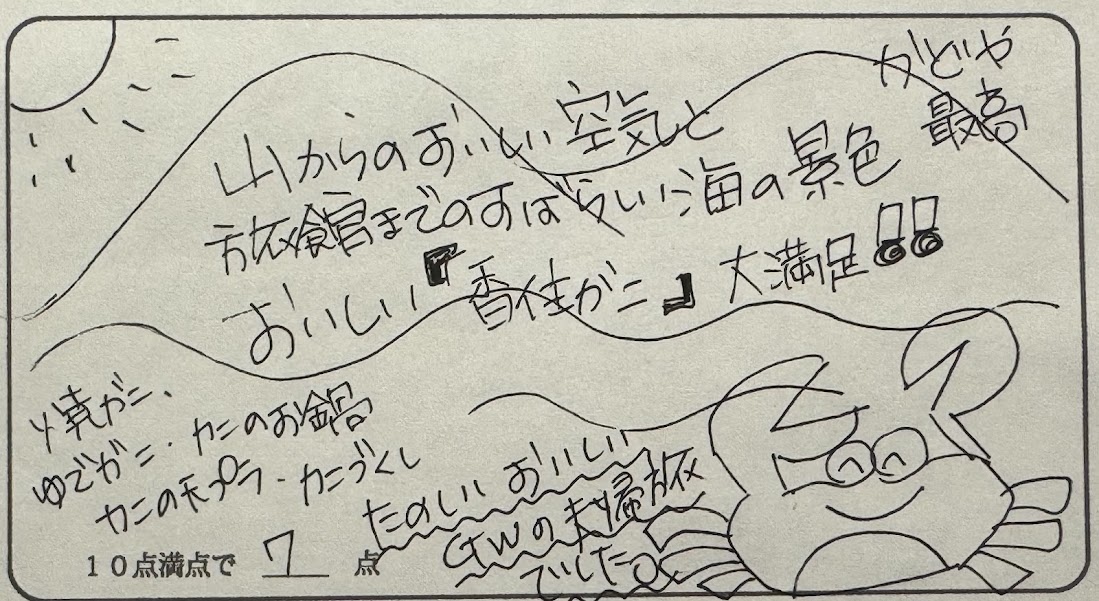 かどや
最高
山からのおいしい空気と
旅館までのすばらしい海の景色
おいしい『香住がニ』大満足!!
焼がニ、
ゆでがニ・カニのお鍋
カニの天プラ・カニづくし
たのしい おいしい
GWの夫婦旅
でした。
10点満点で 7 点